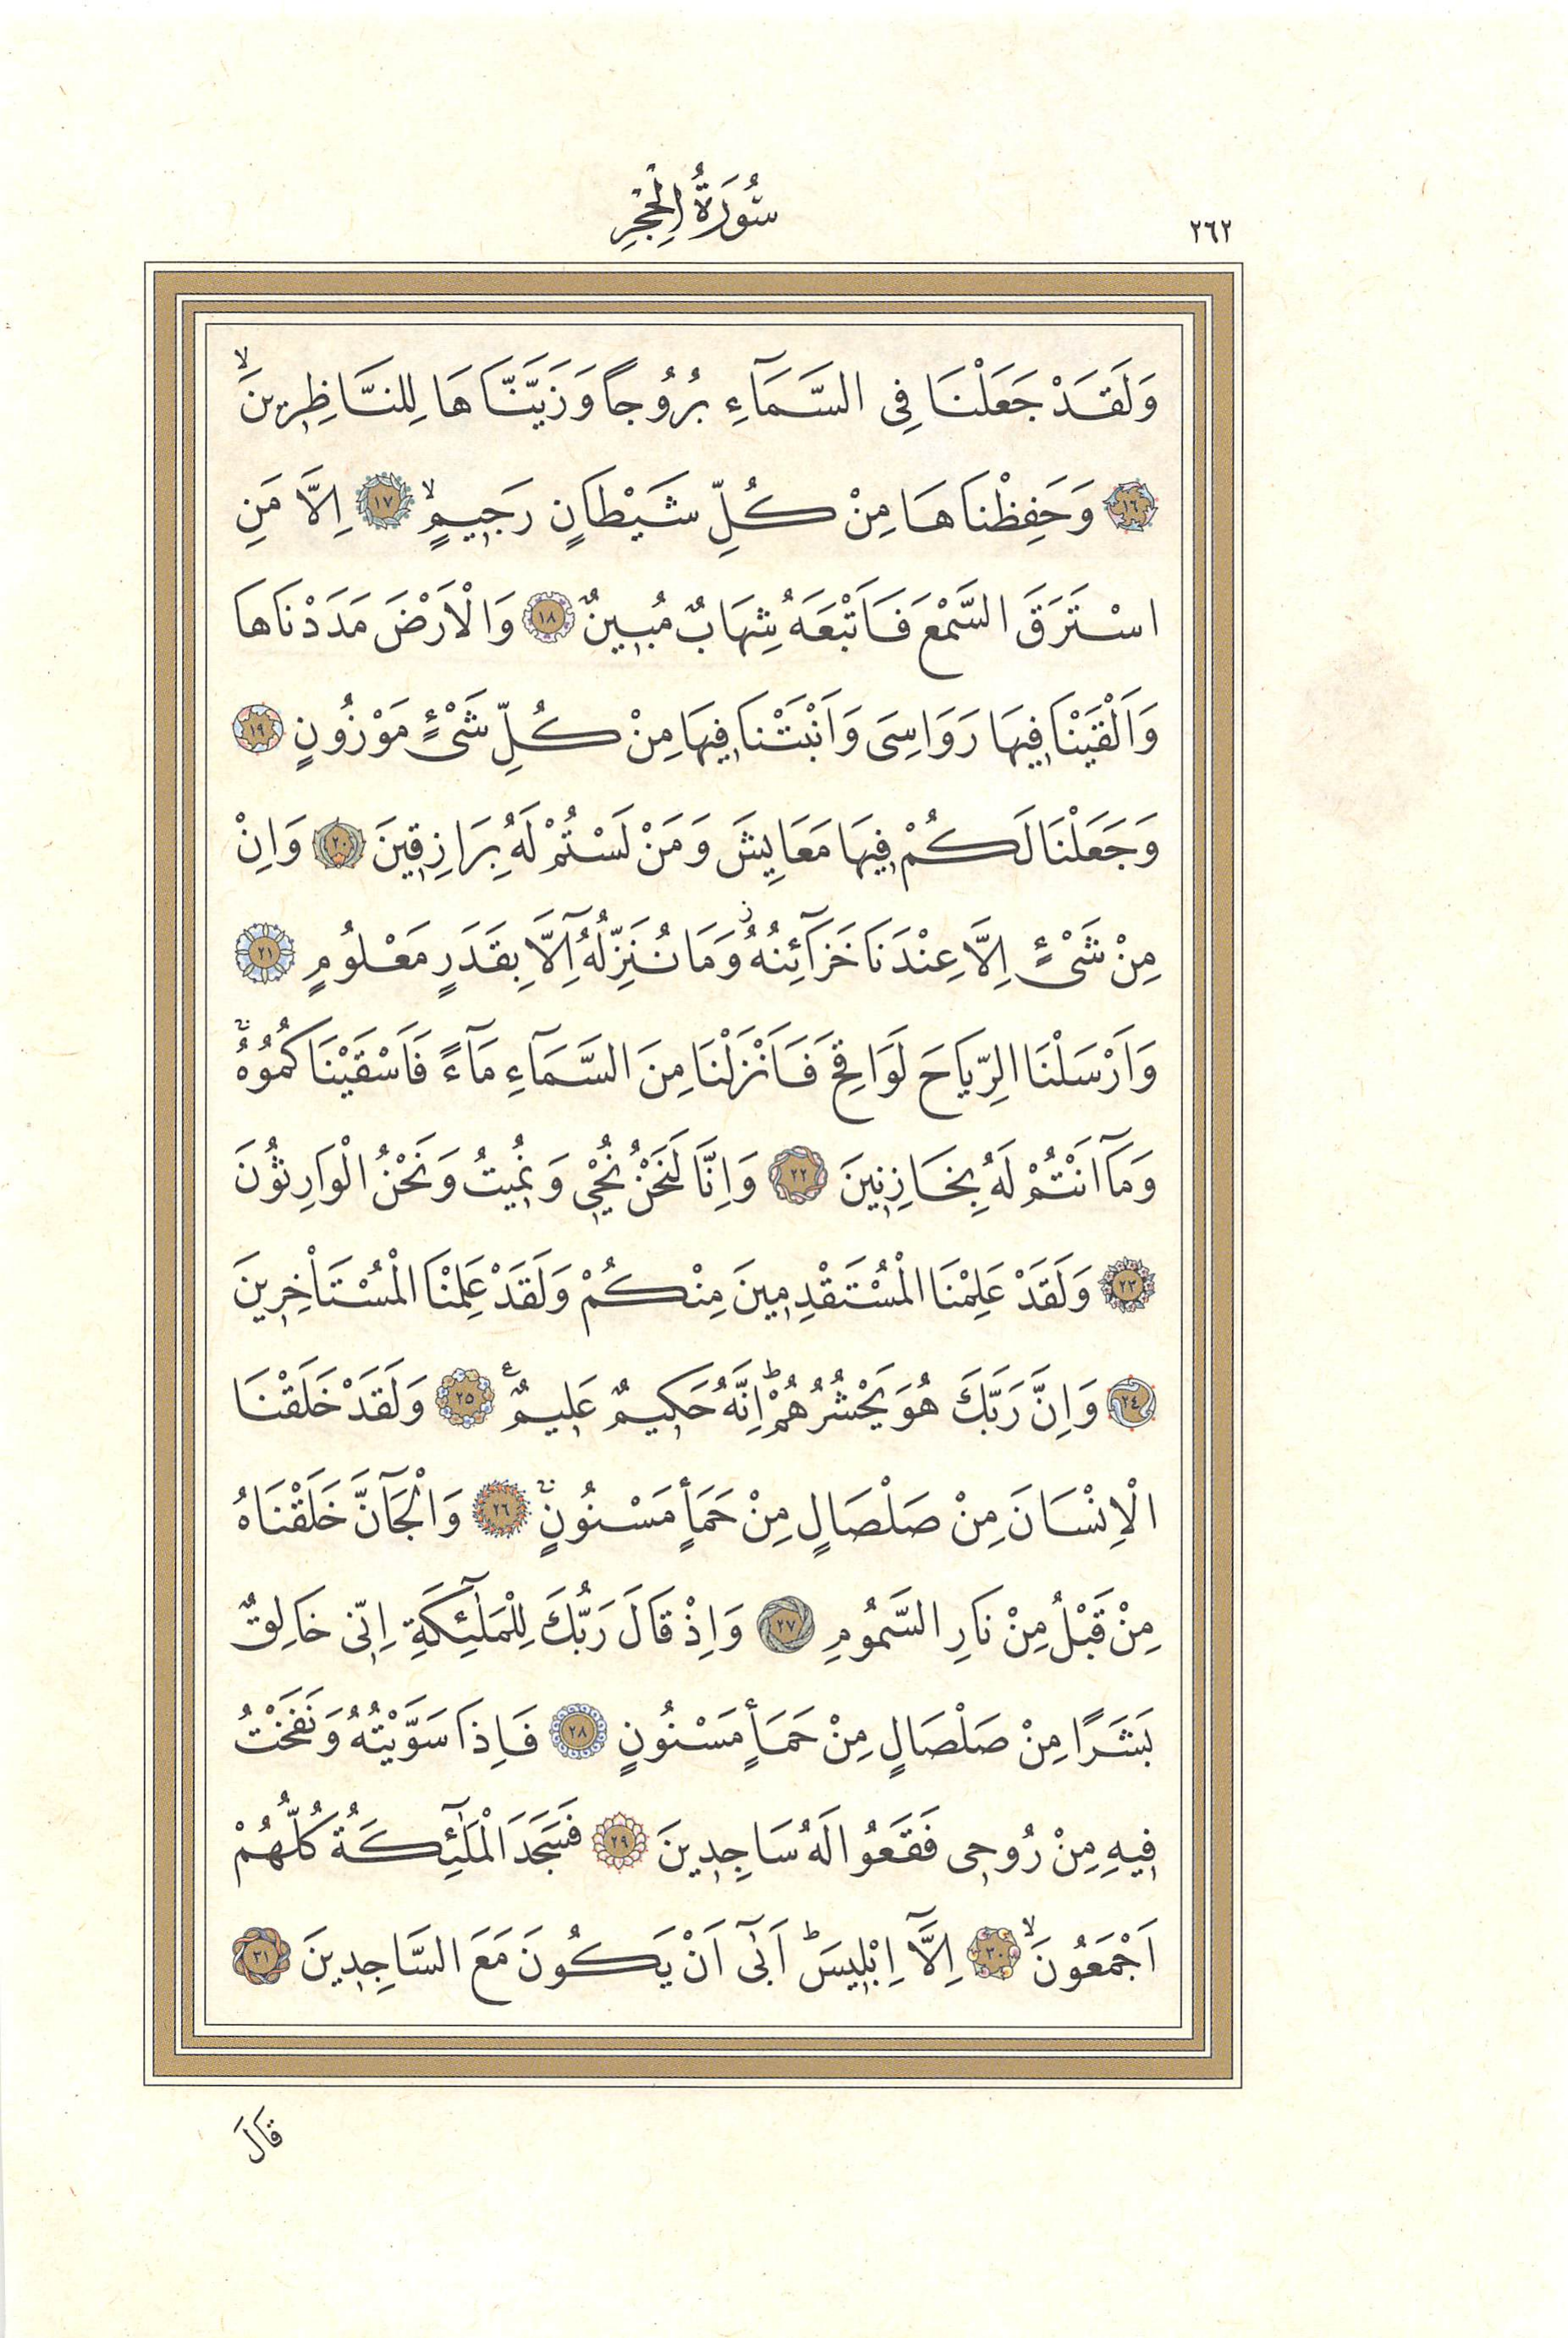 ٢٦٢
سُورَةُ الْحِجْرِ
وَلَقَدْ جَعَلْنَا فِى السَّمَآءِ بُرُوجاً وَزَيَّنَّاهَا لِلنَّاظِرٖينَۙ
﴿١٦﴾ وَحَفِظْنَاهَا مِنْ كُلِّ شَيْطَانٍ رَجٖيمٍۙ ﴿١٧﴾ اِلَّا مَنِ
اسْتَرَقَ السَّمْعَ فَاَتْبَعَهُ شِهَابٌ مُبٖينٌ ﴿١٨﴾ وَالْاَرْضَ مَدَدْنَاهَا
وَاَلْقَيْنَا فٖيهَا رَوَاسِىَ وَاَنْبَتْنَا فٖيهَا مِنْ كُلِّ شَىْءٍ مَوْزُونٍ ﴿١٩﴾
وَجَعَلْنَا لَكُمْ فٖيهَا مَعَايِشَ وَمَنْ لَسْتُمْ لَهُ بِرَازِقٖينَ ﴿٢٠﴾ وَاِنْ
مِنْ شَىْءٍ اِلَّا عِنْدَنَا خَزَآئِنُهُؗ وَمَا نُنَزِّلُهُٓ اِلَّا بِقَدَرٍ مَعْلُومٍ ﴿٢١﴾
وَاَرْسَلْنَا الرِّيَاحَ لَوَاقِحَ فَاَنْزَلْنَا مِنَ السَّمَآءِ مَآءً فَاَسْقَيْنَاكُمُوهُۚ
وَمَآ اَنْتُمْ لَهُ بِخَازِنٖينَ ﴿٢٢﴾ وَاِنَّا لَنَحْنُ نُحْيٖ وَنُمٖيتُ وَنَحْنُ الْوَارِثُونَ
﴿٢٣﴾ وَلَقَدْ عَلِمْنَا الْمُسْتَقْدِمٖينَ مِنْكُمْ وَلَقَدْ عَلِمْنَا الْمُسْتَاْخِرٖينَ
﴿٢٤﴾ وَاِنَّ رَبَّكَ هُوَ يَحْشُرُهُمْؕ اِنَّهُ حَكٖيمٌ عَلٖيمٌ ࣖ ﴿٢٥﴾ وَلَقَدْ خَلَقْنَا
الْاِنْسَانَ مِنْ صَلْصَالٍ مِنْ حَمَأٍ مَسْنُونٍۚ ﴿٢٦﴾ وَالْجَآنَّ خَلَقْنَاهُ
مِنْ قَبْلُ مِنْ نَارِ السَّمُومِ ﴿٢٧﴾ وَاِذْ قَالَ رَبُّكَ لِلْمَلٰٓئِكَةِ اِنّٖى خَالِقٌ
بَشَرًا مِنْ صَلْصَالٍ مِنْ حَمَأٍ مَسْنُونٍ ﴿٢٨﴾ فَاِذَا سَوَّيْتُهُ وَنَفَخْتُ
فٖيهِ مِنْ رُوحٖى فَقَعُوا لَهُ سَاجِدٖينَ ﴿٢٩﴾ فَسَجَدَ الْمَلٰٓئِكَةُ كُلُّهُمْ
اَجْمَعُونَۙ ﴿٣٠﴾ اِلَّآ اِبْلٖيسَؕ اَبٰٓى اَنْ يَكُونَ مَعَ السَّاجِدٖينَ ﴿٣١﴾
قَالَ